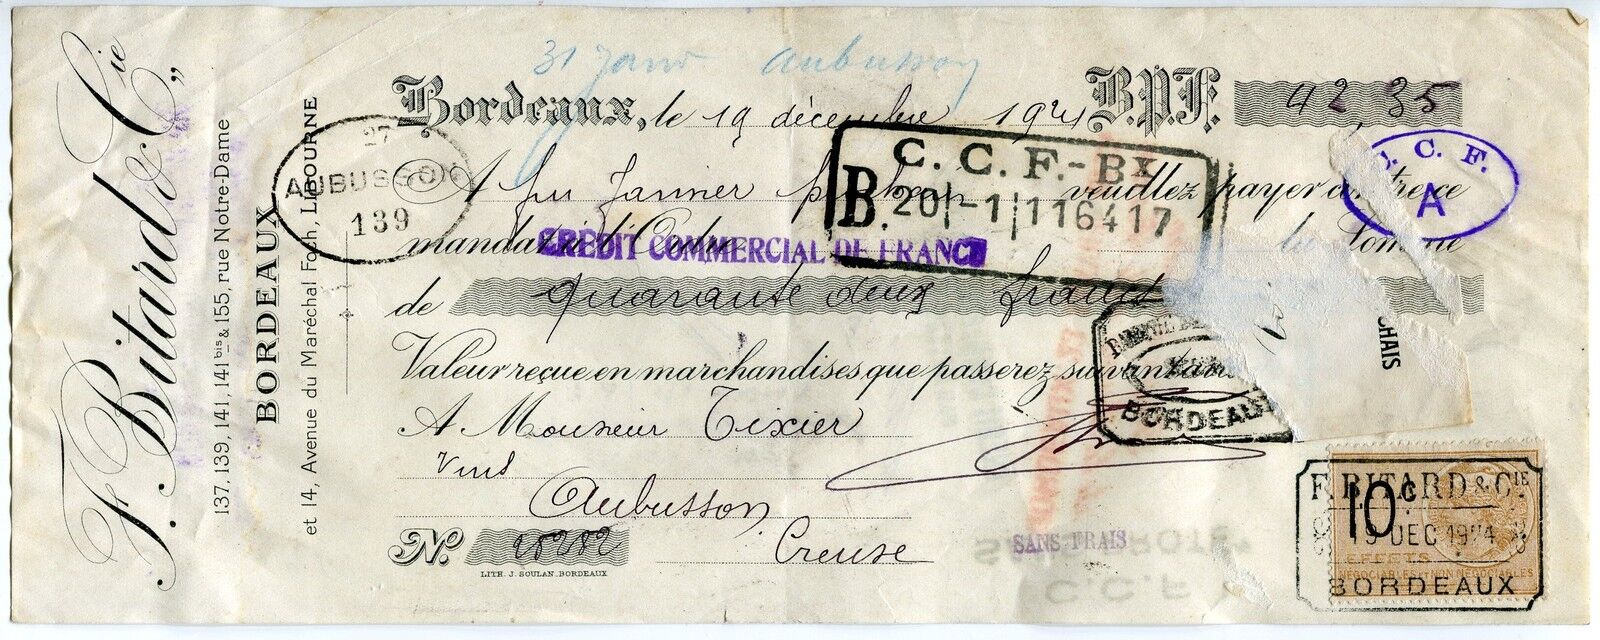 F. Bitard & Cie
137, 139, 141, 141 bis & 155, rue Notre-Dame
BORDEAUX
et 14, Avenue du Maréchal Foch, LIBOURNE
31 Janv Aubusson
Bordeaux, le 19 décembre 1924 B.P.F. 42,35
27
AUBUSSON
139
C. C. F.-Bx
B. 20 -1 116417
C. F.
A
A fin Janvier prochain veuillez payer contre ce
mandat à l'Ordre
CRÉDIT COMMERCIAL DE FRANCE
la Somme
de quarante deux francs
CHAIS
Valeur reçue en marchandises que passerez suivant
BORDEAUX
A Monsieur Tixier
Vins
Aubusson
Creuse
No. 28282
LITH. J. SOULAN_BORDEAUX
SANS FRAIS
F. BITARD & CIE
10c
19 DEC 1924
EFFETS
NÉGOCIABLES ET NON NÉGOCIABLES
BORDEAUX
C. C. F